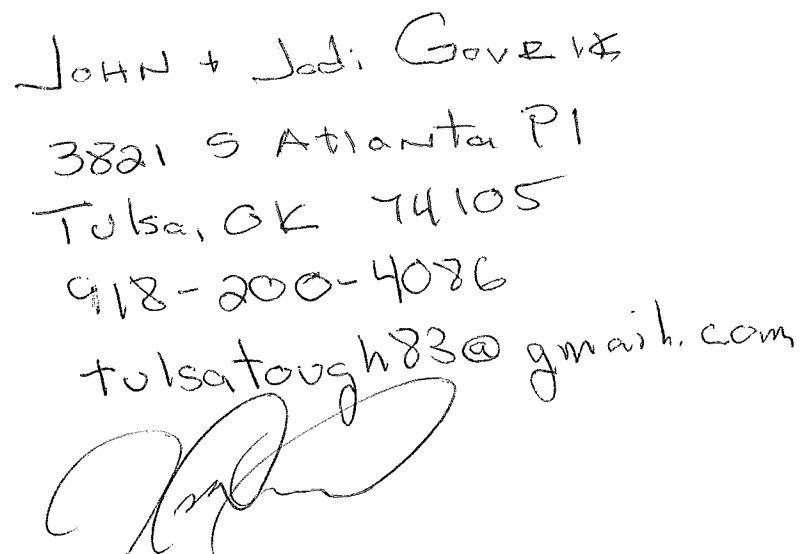 JOHN + Jodi GOVRIK
3821 S Atlanta Pl
Tulsa, OK 74105
918-200-4086
tulsatough83@gmail.com